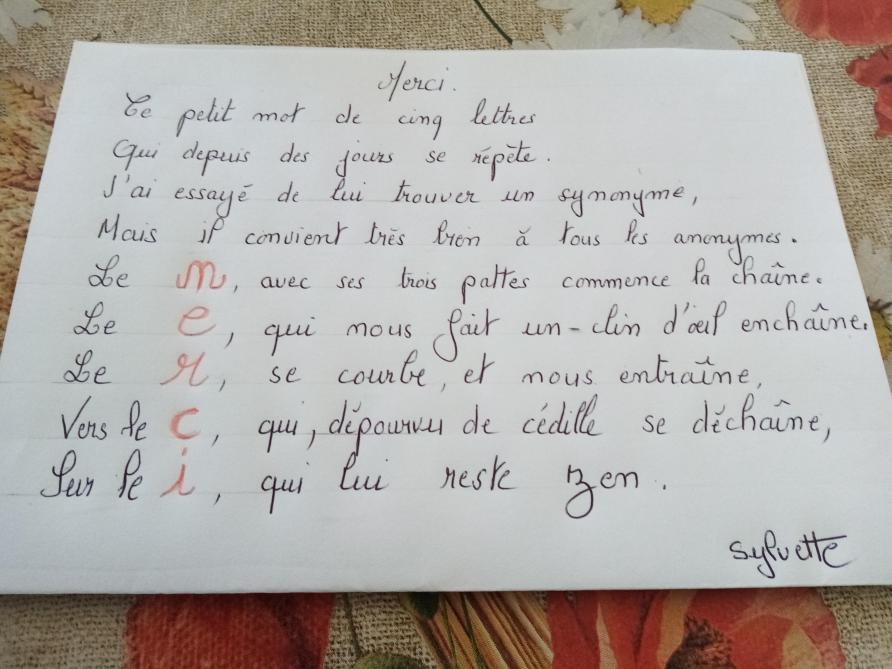 Merci.
Ce petit mot de cinq lettres
Qui depuis des jours se répète.
J'ai essayé de lui trouver un synonyme,
Mais il convient très bien à tous les anonymes.
Le m, avec ses trois pattes commence la chaîne.
Le e, qui nous fait un-clin d'œil enchaîne.
Le r, se courbe, et nous entraîne,
Vers le c, qui, dépourvu de cédille se déchaîne,
Sur le i, qui lui reste zen.
Sylvette